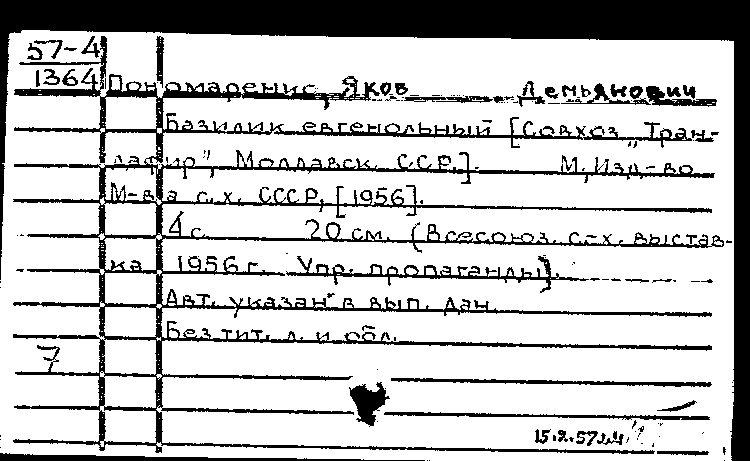 57-4
1364
Пономаренко, Яков Демьянович
Базилик евгенольный [Совхоз „Тран-
дафир", Молдавск. ССР.]. М., Изд-во
М-ва с.х. СССР, [1956].
4 с. 20 см. (Всесоюз. с.-х. выстав-
ка 1956 г. Упр. пропаганды).
Авт. указан в вып. дан.
Без тит. л. и обл.
7